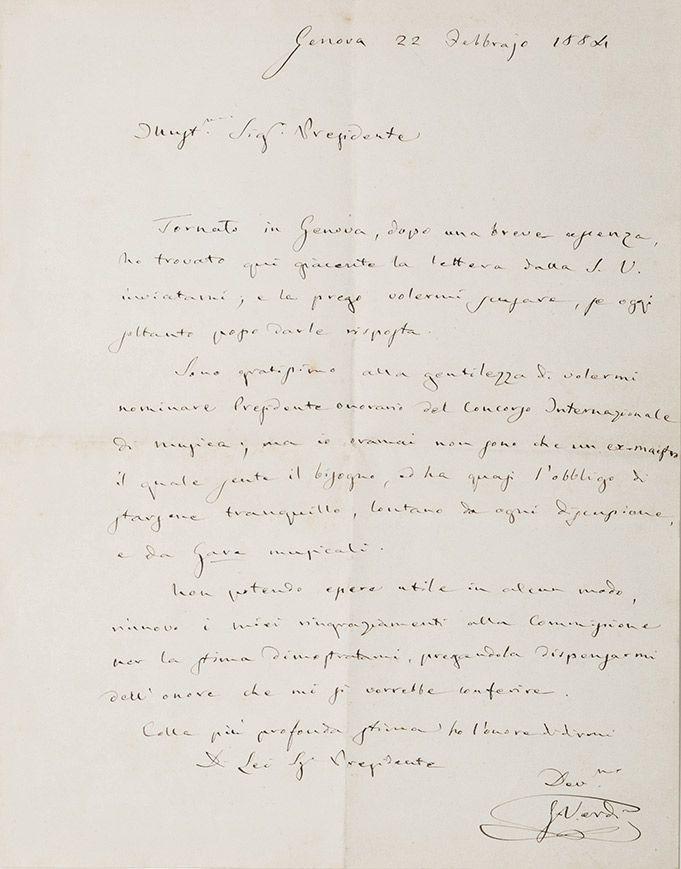 Genova 22 Febbrajo 1884
Illust.mo Sig.r Presidente
Tornato in Genova, dopo una breve assenza,
ho trovato qui giacente la lettera dalla S. V.
inviatami; e la prego volermi scusare, se oggi
soltanto posso darle risposta.
Sono gratissimo alla gentilezza di volermi
nominare Presidente onorario del Concorso Internazionale
di musica; ma io oramai non sono che un ex-maestro
il quale sente il bisogno, ed ha quasi l'obbligo di
starsene tranquillo, lontano da ogni discussione,
e da Gare musicali.
Non potendo essere utile in alcun modo,
rinnovo i miei ringraziamenti alla Commissione
per la stima dimostratami, pregandola dispensarmi
dell'onore che mi si vorrebbe conferire.
Colla più profonda stima ho l'onore di dirmi
Di Lei Sig Presidente
Dev.mo
G. Verdi